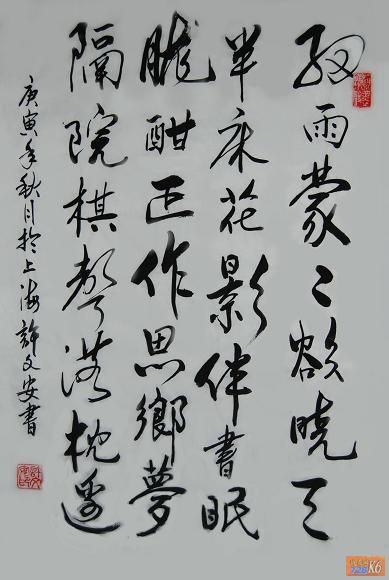 细雨蒙々欲曉天
半床花影伴書眠
胧酣正作思鄉夢
隔院棋聲落枕邊
庚寅年秋月於上海許文安書
K6